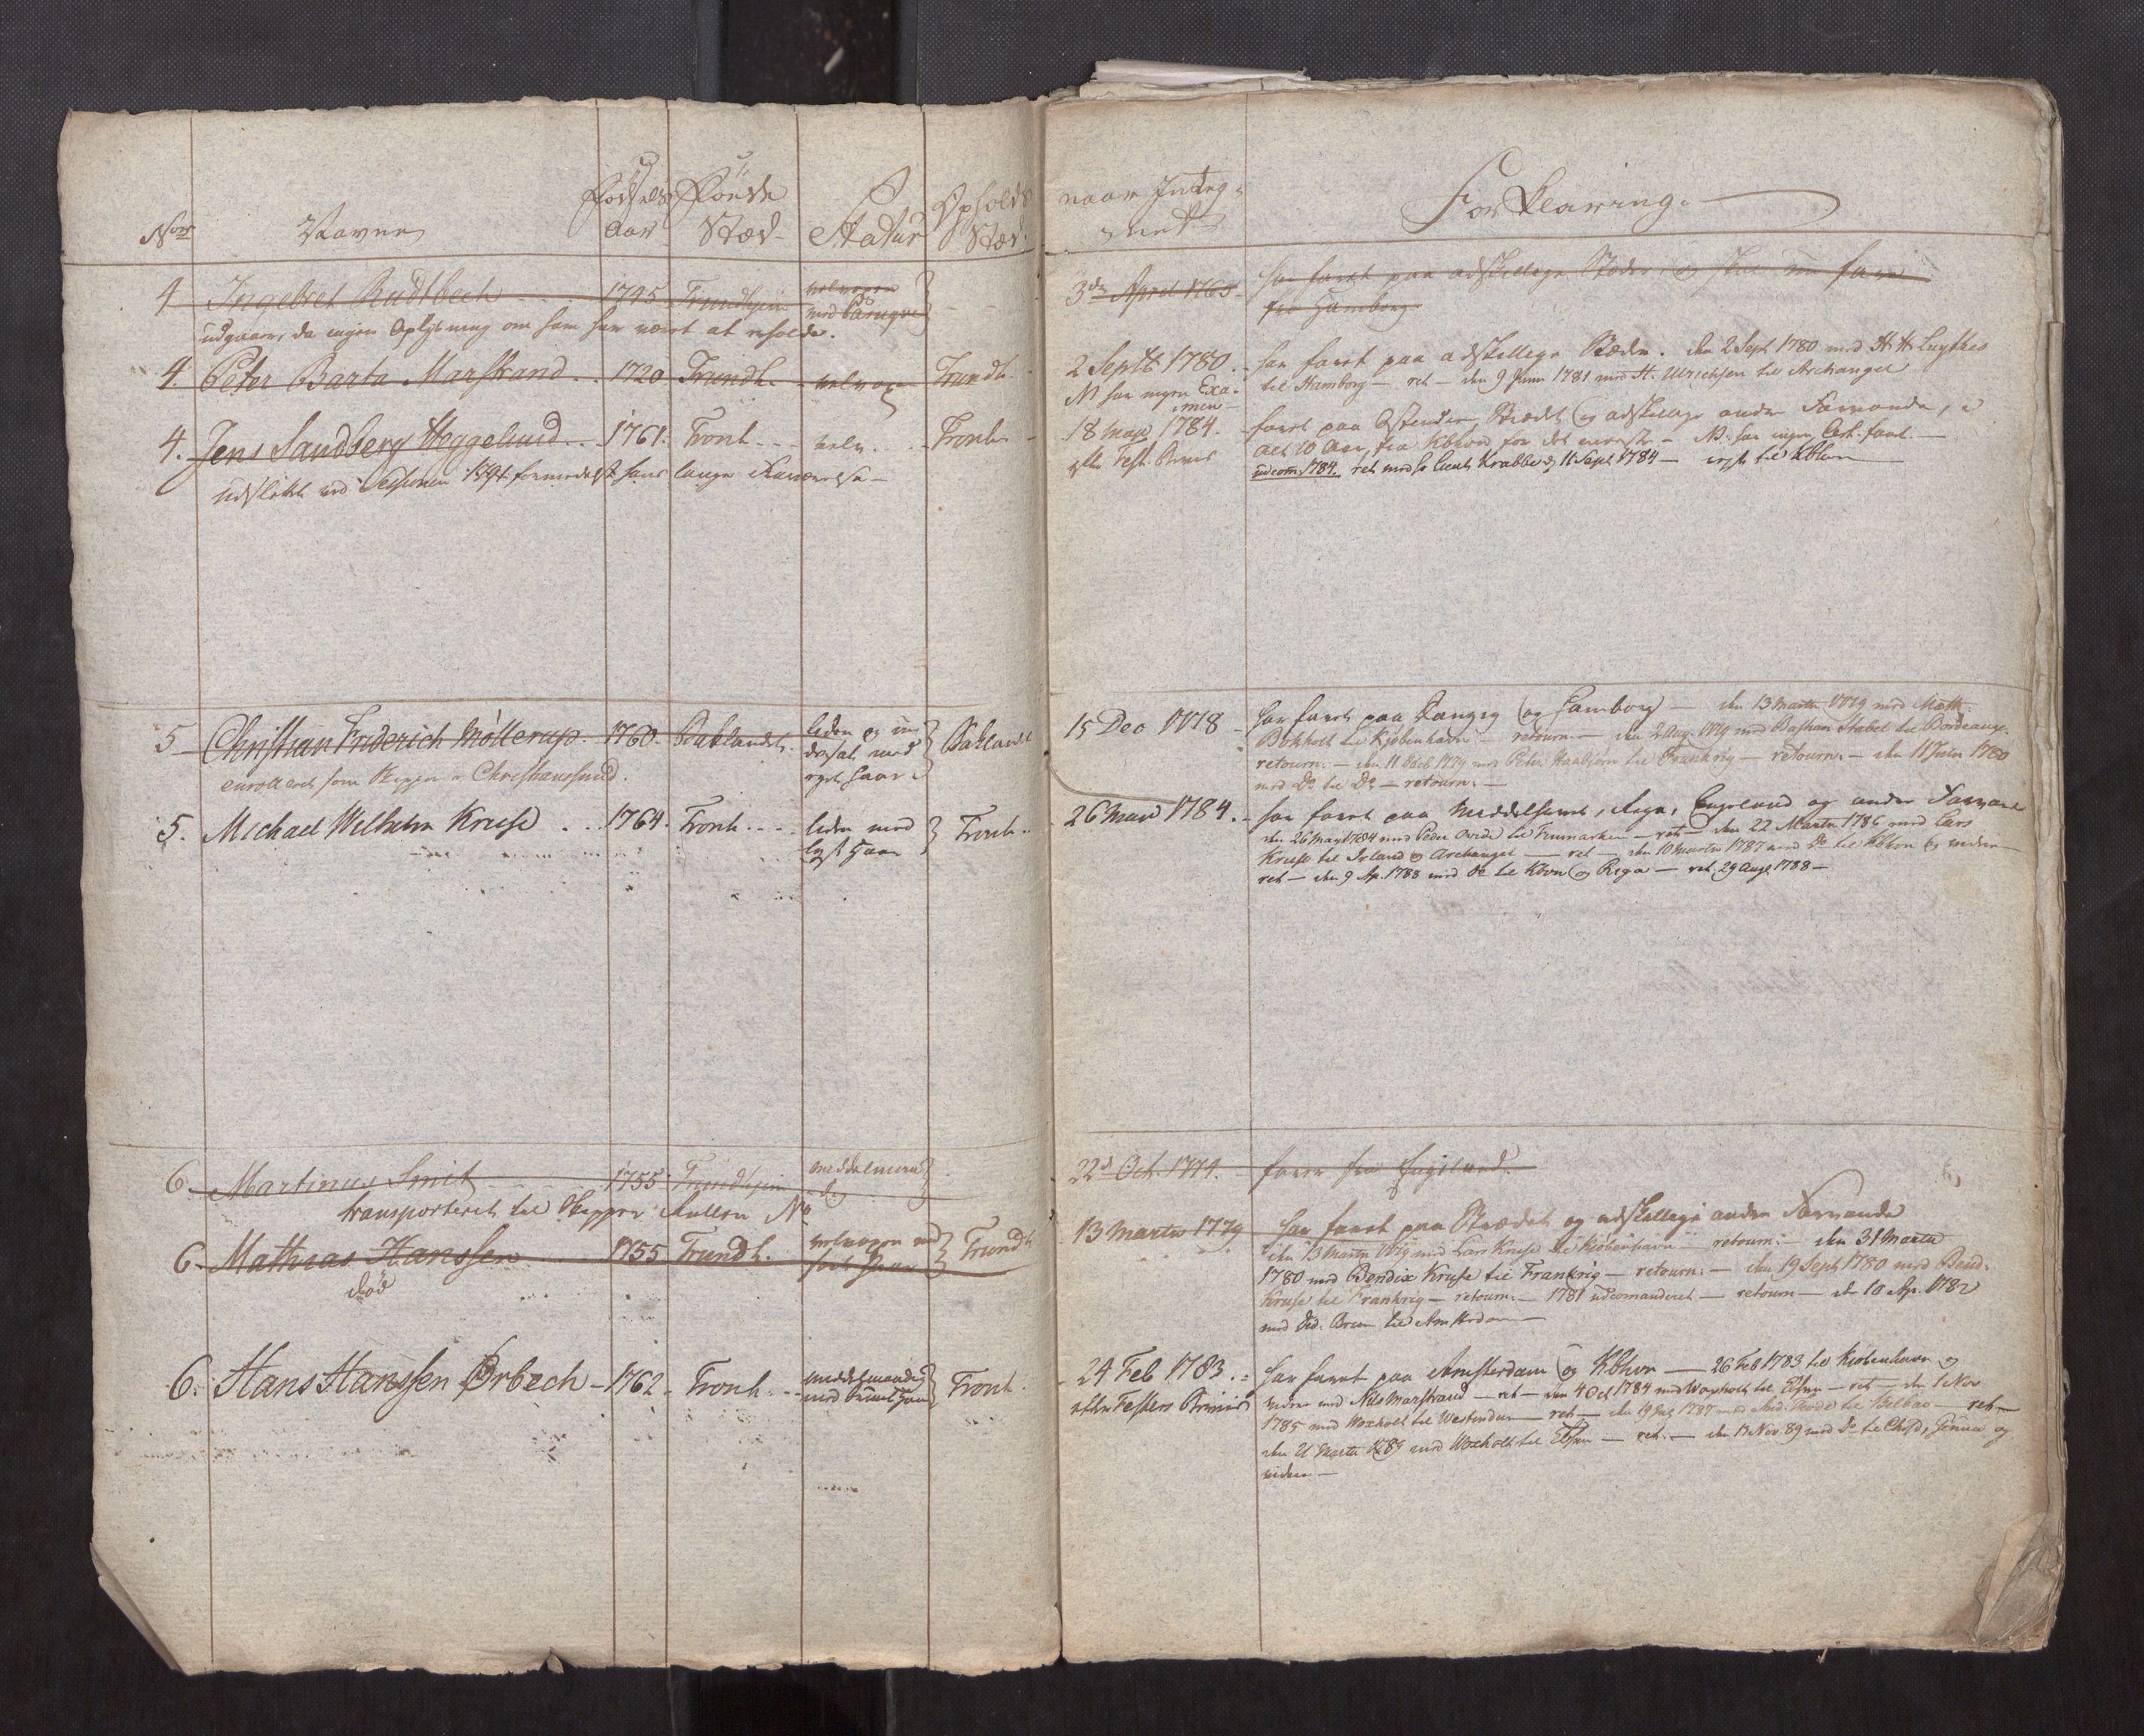 Nor
Navne
Fødsels Aar
Føde Stæd
Statur
Opholds Stæd
naar Integ-
net
Forklaring.
4 Ingebret Rudtbech 1745 Trundhjem velvoxen
med Paruque
3de April 1765
har faret paa adskellige Stæder og skal nu fare
fra Hamborg
udgaaer, da ingen Oplysning om ham har været at erholde.
4. Peter Barta Marstrand 1720 Trundh. velvoxen Trundh.
2 Septb 1780. har faret paa adskellige Stæder. den 2 Sept 1780 med H. H. Luytkes
NB har ingen Exa-
men
til Hamborg — ret — den 9 Juni 1781 med H. Ulrichsen til Archangel
4. Jens Sandberg Heggelund 1761. Tronh. velv. Tronh.
18 May 1784. faret paa Ostender, Strædet og adskellige andre Farvande, i
efter Fest. Brevis
alt 10 Aar, fra Kbhvn for det meeste — NB. har ingen
udcom: 1784. ret med Lieut. Krabbe d. 11 Sept 1784 — rejst til Kbhvn
udslettet ved Sessionen 1794 formedelst hans lange Fraværelse —
5 Christian Friderich Møllerup 1760 Baklandet. liden og un-
dersat med
eget haar
Baklandet
15 Dec 1778 har faret paa Danzig og Hamborg — den 13 Martii 1779 med Math.
Bokholt til Kjøbenhavn — retourn. — den 2 Aug. 1779 med Bastian Stabel til Bordeaux.
retourn. — den 11 1779 med Peter til Frankrig — retourn. — den 11 Julii 1780
med Do til Do — retourn. —
enrolleret som Skipper i Christianssund.
5. Michael Wilhelm Kruse 1764. Tronh. liden med
lyst Haar
Tronh.
26 May 1784. har faret paa Middelhavet, Riga, Engeland og andre Farvande
den 26 May 1784 med Peder til Finmarken — ret — den 22 Martii 1786 med Lars
Kruse til Island og Archangel — ret — den 10 Martii 1787 med Do til Kbhvn og videre
ret — den 9 Ap. 1788 med Do til Kbvn og Riga — ret 29 Aug 1788 —
6 Martinus Smit 1755 Trundhjem middelmaa-
dig
22d Oct. 1774. farer fra Engeland.
transporteret til Skipper Rullen No
6 Mathias Hanssen 1755 Trundh. velvoxen med
sort Haar
Trundh
13 Martii 1779 har faret paa Strædet og adskellige andre Farvande
den 13 Martii 1779 med Lars Kruse til Kjøbenhavn — retourn: — den 31 Martii
1780 med Bendix Kruse til Frankrig — retourn: — den 19 Sept 1780 med Bend:
Kruse til Frankrig — retourn: — 1781 udcomanderet — retourn — d. 10 Ap. 1782
med Did. Brun til Amsterdam —
død
6. Hans Hanssen Ørbech 1762 Tronh. middelmaadig
med bruunt Haar
Tronh.
24 Feb 1783. har faret paa Amsterdam og Kbhvn — 26 Feb 1783 til Kiøbenhavn og
efter Festers Brevis
videre med Nils Marstrand — ret — den 4 Oct 1784 med Woxholt til — ret — den 1 Nov
1785 med Woxholt til Vestindien — ret — den 19 1787 med til Bilbao — ret —
den 21 Martii 1789 med Woxholt til — ret. — den 13 Nov. 89 med Do til Chrsd, Genua og
videre —